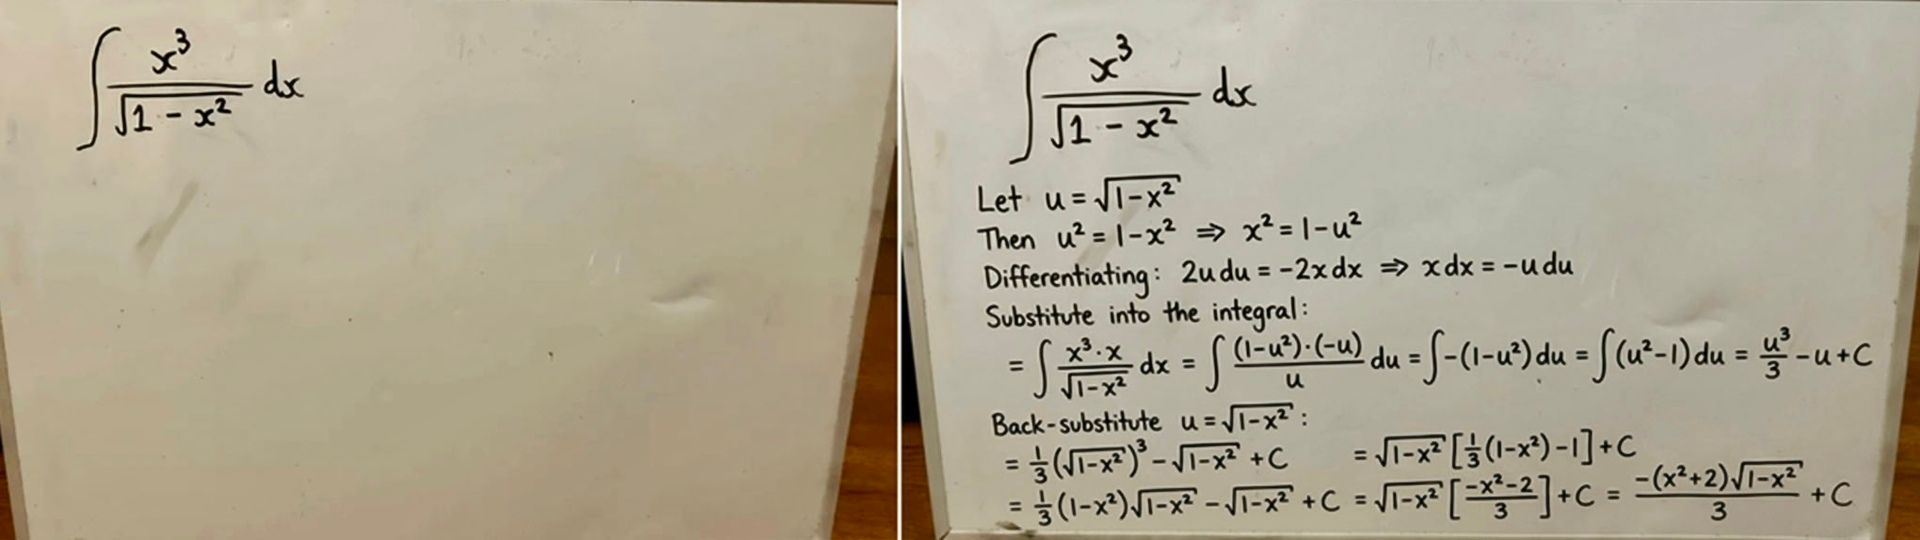 ∫ x³/√(1 - x²) dx
∫ x³/√(1 - x²) dx
Let u = √(1-x²)
Then u² = 1-x² ⇒ x² = 1-u²
Differentiating: 2u du = -2x dx ⇒ x dx = -u du
Substitute into the integral:
= ∫ (x³·x)/√(1-x²) dx = ∫ ((1-u²)·(-u))/u du = ∫ -(1-u²) du = ∫ (u²-1) du = u³/3 - u + C
Back-substitute u = √(1-x²) :
= 1/3 (√(1-x²))³ - √(1-x²) + C = √(1-x²) [1/3 (1-x²) - 1] + C
= 1/3 (1-x²)√(1-x²) - √(1-x²) + C = √(1-x²) [(-x²-2)/3] + C = (-(x²+2)√(1-x²))/3 + C